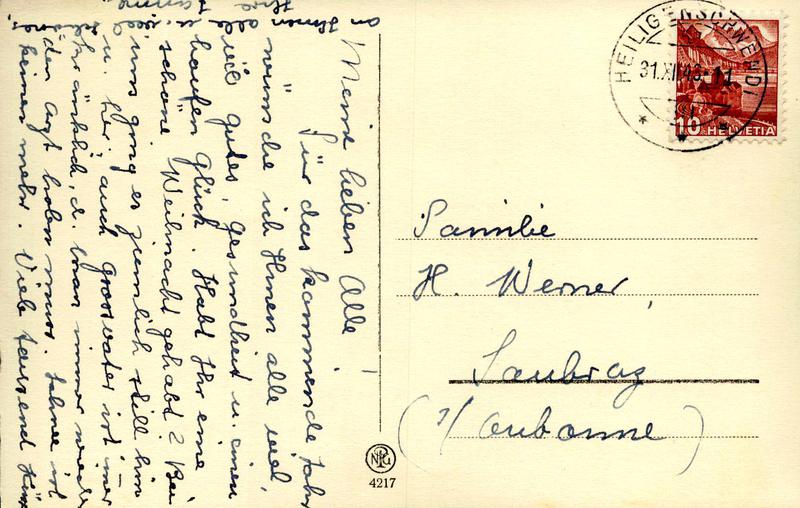 Meine lieben Alle!
Für das kommende Jahr
wünsche ich Ihnen alle viel,
viel gutes, Gesundheit u. einen
haufen Glück. Habt Ihr eine
schöne Weihnacht gehabt? Bei
uns ging es ziemlich still hin
u. her, auch Grossvater ist immer
sehr d. man immer wieder
den Arzt holen muss. Schnee ist
keinen mehr. Viele tausend
an Ihnen alle
Ihre
HEILIGENSCHWENDI
31.XII.43.-11
10 HELVETIA
Familie
H. Werner,
Saubraz
(s/Aubonne)
4217